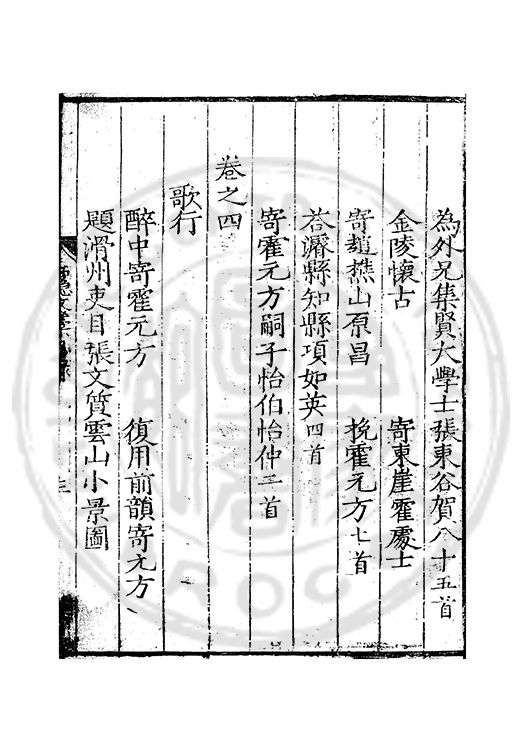 為外兄集賢大學士張東谷賀八十五首
金陵懷古　寄東崖霍處士
寄趙樵山原昌　挽霍元方七首
答濬縣知縣項如英四首
寄霍元方嗣子怡伯怡仲二首
卷之四
歌行
醉中寄霍元方　復用前韻寄元方
題滑州吏目張文質雲山小景圖